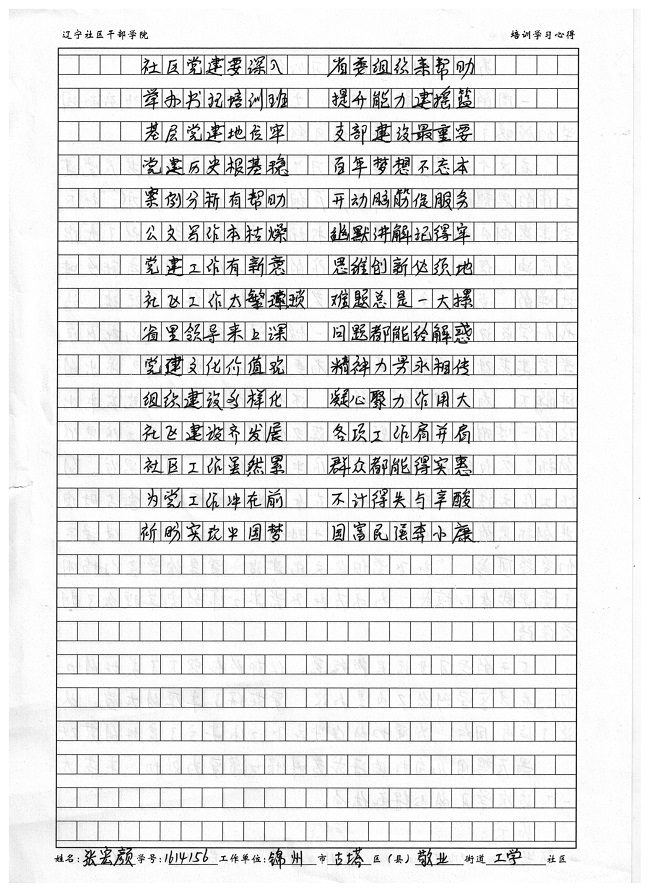 辽宁社区干部学院 培训学习心得
社区党建要深入 省委组织来帮助
举办书记培训班 提升能力建摇篮
基层党建地位牢 支部建设最重要
党建历史根基稳 百年梦想不忘本
案例分析有帮助 开动脑筋促服务
公文写作本枯燥 幽默讲解记得牢
党建工作有新意 思维创新必须地
社区工作大繁琐 难题总是一大摞
省里领导来上课 问题都能给解惑
党建文化价值观 精神力量永相传
组织建设多样化 凝心聚力作用大
社区建设齐发展 各项工作肩并肩
社区工作虽然累 群众都能得实惠
为党工作冲在前 不计得失与辛酸
祈盼实现中国梦 国富民强奔小康
姓名:张宏颜 学号:1614156 工作单位:锦州 市 古塔 区(县) 敬业 街道 工学 社区